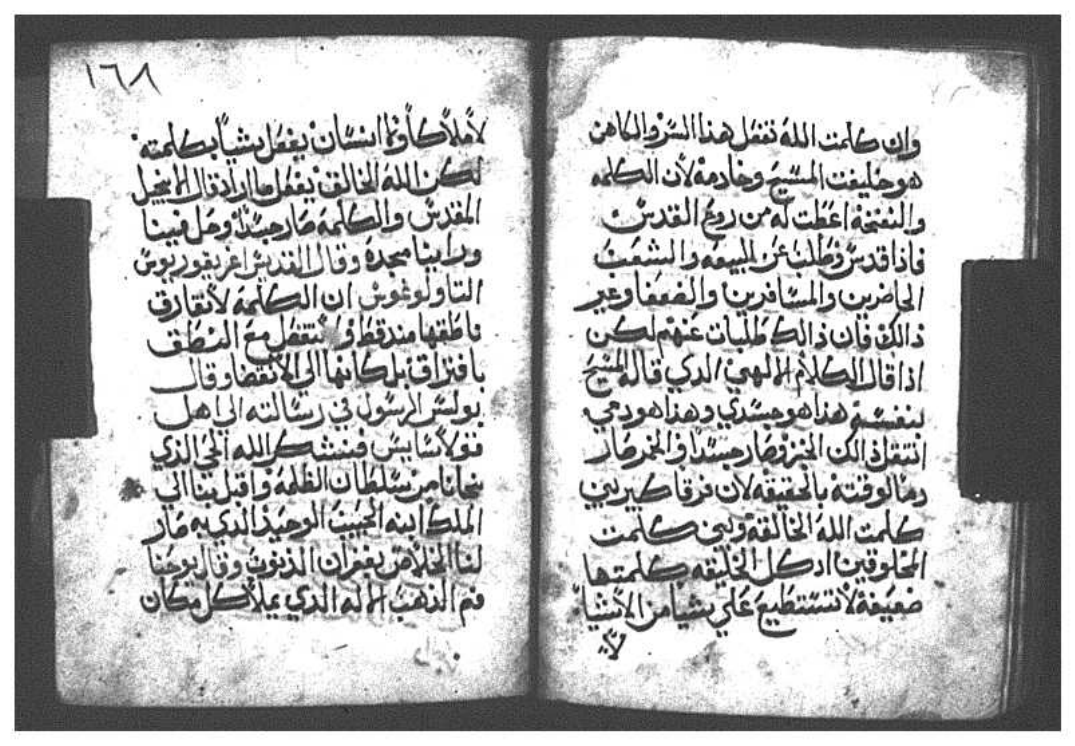 وان كلمت الله تفعل هذا السر والكاهن
هو خليفت المسيح وخادمه لأن الكلمه
والنفخه اعطت له من روح القدس
فاذا قدس وطلب عن البيعه والشعب
الحاضرين والمسافرين والضعفا وغير
ذالك فان ذالك طلبات عنهم لكن
اذا قال الكلام الالهي الذي قاله المسيح
لنفسه هذا هو جسدي وهذا هو دمي
انتقل ذالك الخبز وصار جسدا والخمر صار
دما لوقته بالحقيقه لان فرقا كبير بين
كلمت الله الخالقه وبين كلمت
المخلوقين اذ كل الخليقه كلمتها
ضعيفة لا تستطيع علي شيا من الاشيا
لا
١٦٨
لا ملاكا ولا انسان يفعل شيا بكلمته
لكن الله الخالق يفعل ما اراد قال الانجيل
المقدس والكلمه صار جسدا وحل فينا
وراينا مجده وقال القديس اغريغوريوس
التاولوغوس ان الكلمه لا تفارق
ناطقها منذ قط ولا تنفصل مع النطق
بافتراق بل كانها الي الانقضا وقال
بولس الرسول في رسالته الى اهل
قولاسايس فنشكر الله الحي الذي
نجانا من سلطان الظلمه واقبل بنا الي
الملك ابنه الحبيب الوحيد الذي به صار
لنا الخلاص بغفران الذنوب وقال يوحنا
فم الذهب الاله الذي يملا كل مكان